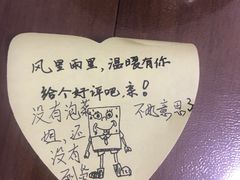 风里雨里，温暖有你
给个好评吧，亲！
没有泡菜
不好意思了
姐，还
没有
到货